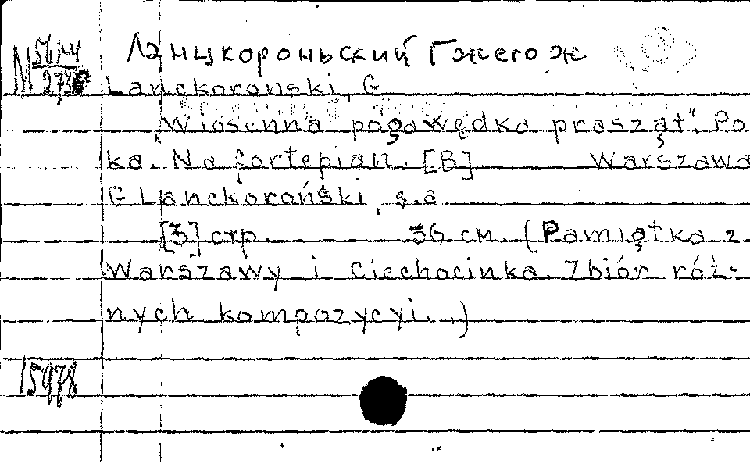 Ланцкороньский Гжегож
Lanckoroński, G
„Wiosenna pogawędka prasząt". Po-
ka. Na fortepian. [B] Warszawa
G Lanckoroński, s.a.
[3] стр. 36 см. (Pamiątka z
Warszawy i Ciechocinka. Zbiór róż-
nych kompozycyi..)
15978